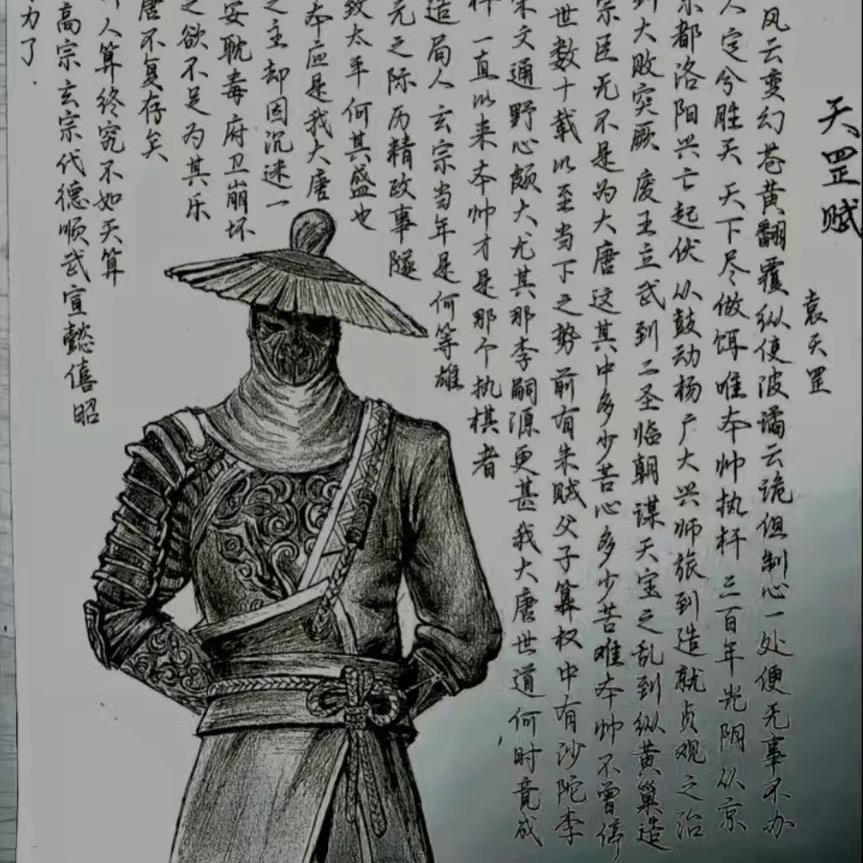 天罡赋
袁天罡
风云变幻苍黄翻覆纵使波谲云诡但制心一处便无事不办
人定兮胜天 天下尽做饵唯本帅执杆 三百年光阴从京
都洛阳兴亡起伏 从鼓动杨广大兴师旅到造就贞观之治
到大败突厥 废王立武到二圣临朝 谋天宝之乱到纵黄巢造
宗臣无不是为大唐 这其中多少苦心多少苦难本帅不曾停
世数十载以至当下之势前有朱贼父子算权中有沙陀李
宋文通野心颇大尤其那李嗣源更甚我大唐世道何时竟成
一直以来本帅才是那个执棋者
造局人 玄宗当年是何等雄
元之际历精政事隧
致太平何其盛也
本应是我大唐
之主却因沉迷一
安耽毒府卫崩坏
之欲不足为其乐
唐不复存矣
人算终究不如天算
高宗玄宗代德顺武宣懿僖昭
力了.